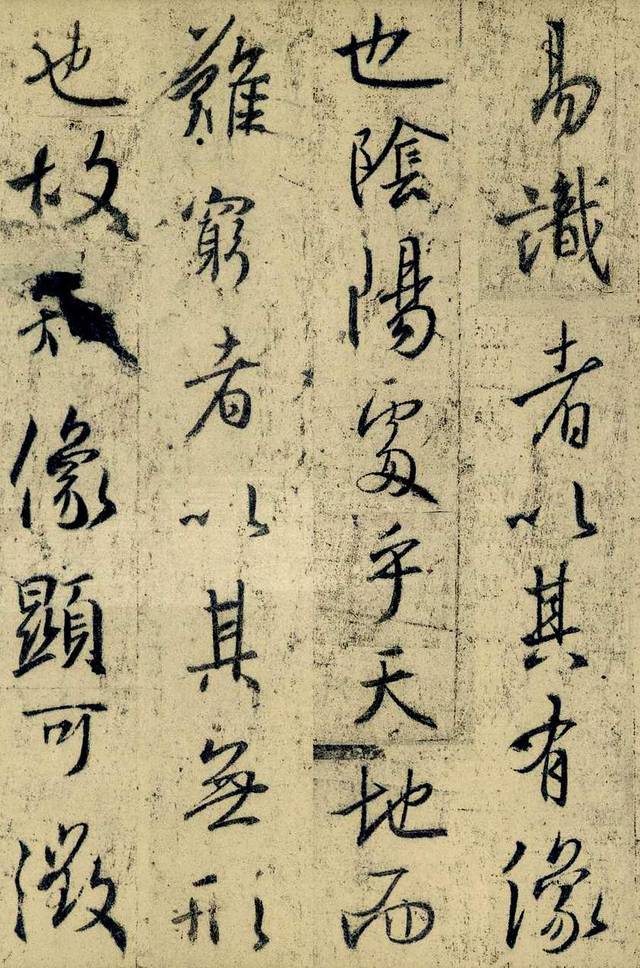 易識者以其有像
也陰陽處乎天地而
難窮者以其無形
也故知像顯可徵